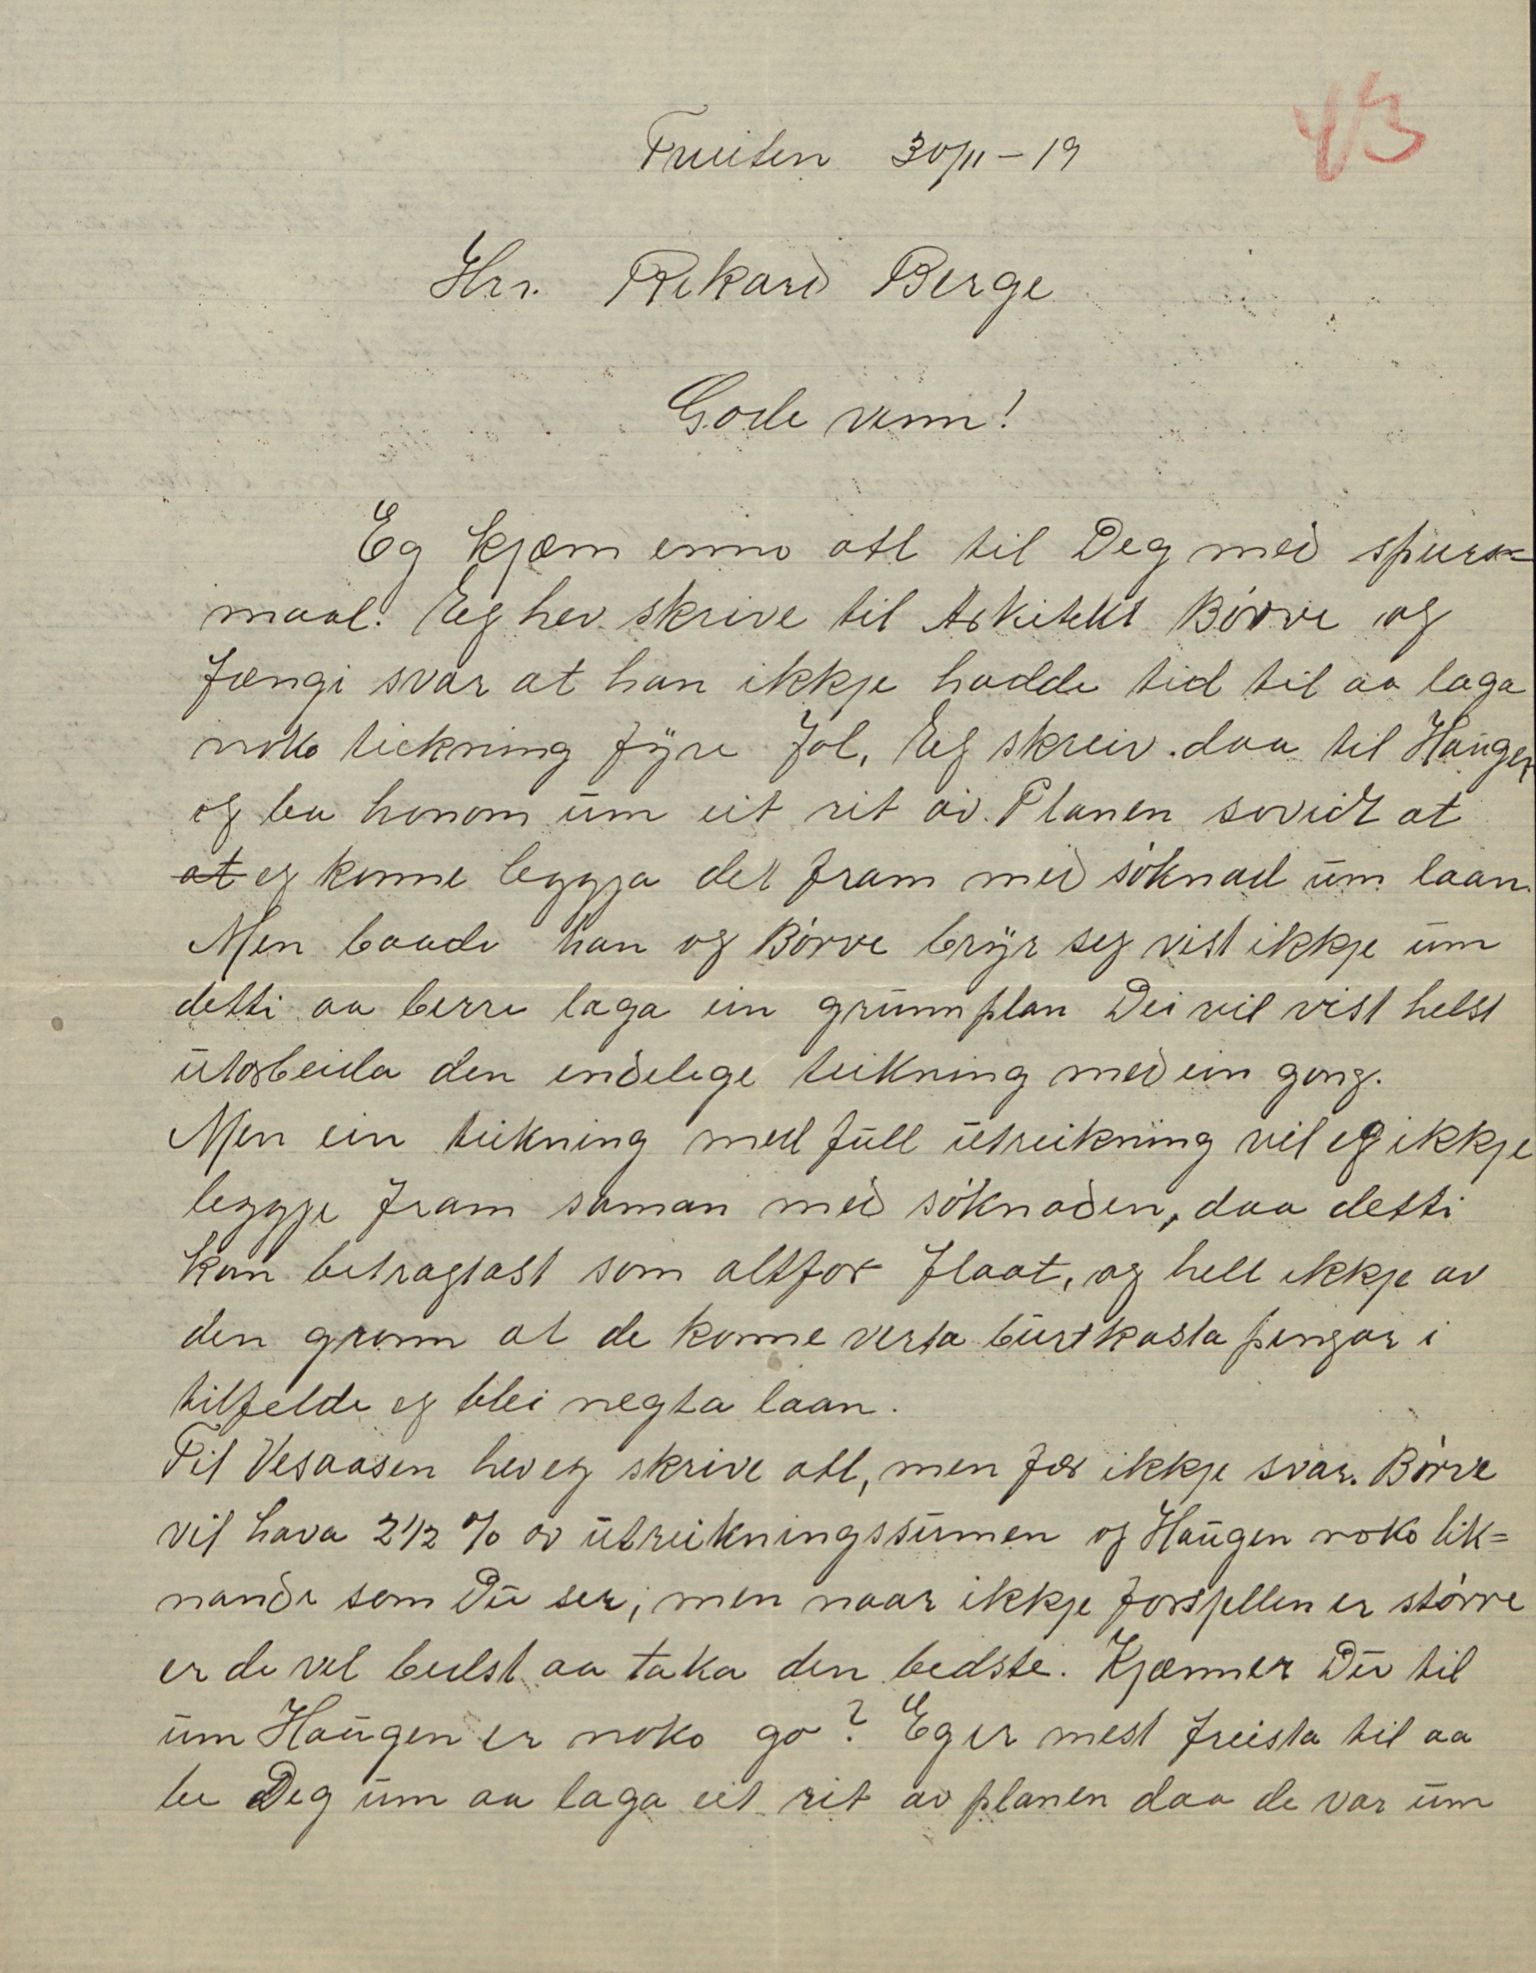 43
Tveiten 30/11 - 19
Hrr. Rikard Berge
Gode venn!
Eg kjæm enno att til Deg med spurs=
maal. Eg hev skrive til Arkitekt Børve og
fengi svar at han ikkje hadde tid til aa laga
noko teikning fyre Jol, Eg skreiv daa til Haugen
og ba honom um eit rit av Planen sovidt at
at eg konne leggja det fram med söknad um laan.
Men baade han og Børve bryr seg vist ikkje um
detti aa berre laga ein grunnplan Dei vil vist helst
utarbeida den endelege teikning med ein gong.
Men ein teikning med full utreikning vil eg ikkje
leggje fram saman med söknaden, daa detti
kan betragtast som altfor flaat, og hell ikkje av
den gronn at de konne verta burtkasta pengar i
tilfelde eg blei negta laan.
Til Vesaasen hev eg skrive att, men fær ikkje svar. Børve
vil hava 2 1/2 % av utreikningssumen og Haugen noko lik=
nande som Du ser, men naar ikkje forspellen er større
er de vel bedst aa taka den bedste. Kjænner Du til
um Haugen er noko go? Eg er mest freista til aa
be Deg um aa laga eit rit av planen daa de var um